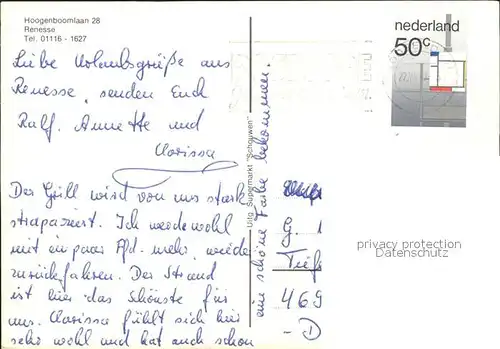 Hoogenboomlaan 28
Renesse
Tel. 01116 - 1627
Liebe Urlaubsgrüße aus
Renesse senden Euch
Ralf, Annette und
Clarissa
Der Grill wird von uns stark
strapaziert. Ich werde wohl
mit ein paar Pfd. mehr, wieder
zurückfahren. Der Strand
ist hier das Schönste für
uns. Clarissa fühlt sich hier
sehr wohl und hat auch schon
eine schöne Farbe bekommen.
Uitg. Supermarkt "Schouwen"
nederland
50c
G.
Tief
469
- D
privacy protection
Datenschutz